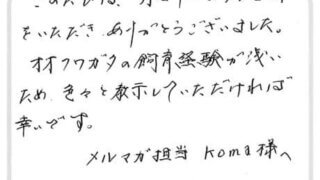 をいただき ありがとうございました。
オオクワガタの飼育経験が浅い
ため 色々と教示していただければ
幸いです。
メルマガ担当 Koma様へ